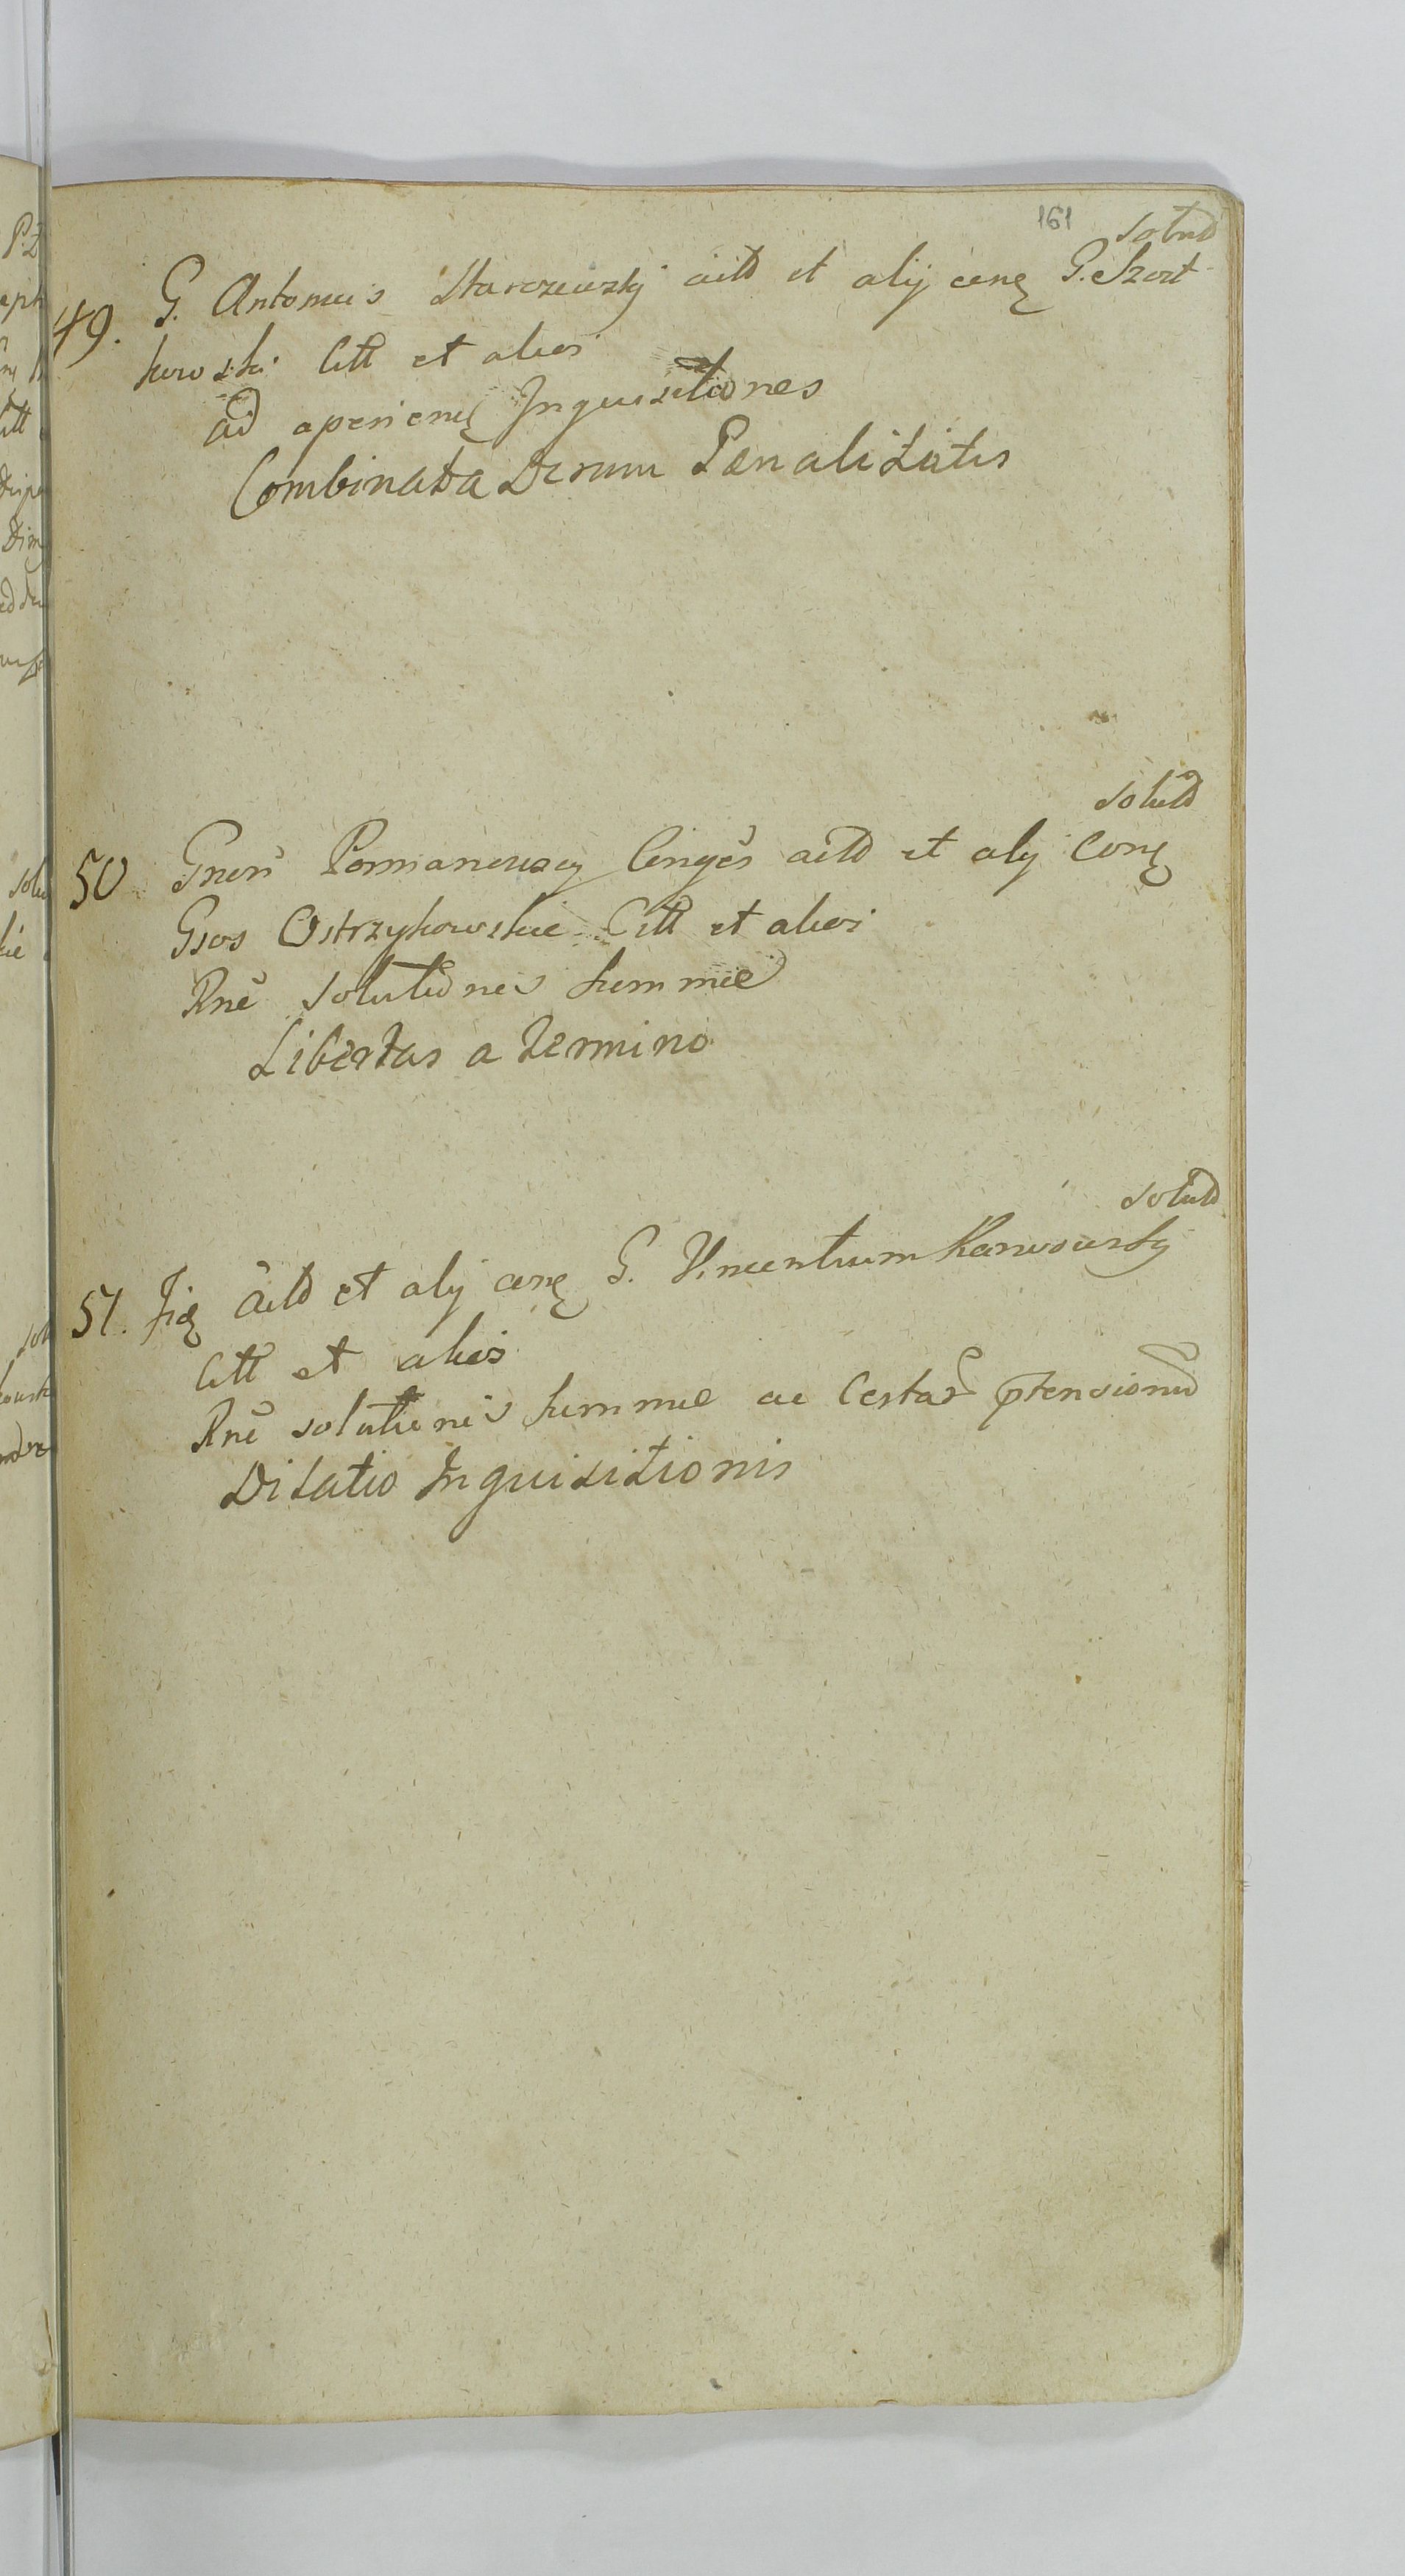 161
solutd
49. G. Antonius Starczewsky actd et alij cenę G. Szost-
kowski Citt et alios
ad aperiend Inquisitiones
Combinata Verum Pænalitatis
solutd
50 Gneri Pomianowscy Cinges actd et alij Conę
Gsos Ostrzykowskie Citt et alios
Rne solutionis summæ
Libertas a termino
solutd
51. Jią actd et alij cenę G. Vincentium Karwowsky
Citt et alios
Rne solutionis summæ ac Certar ptensionu
Dilatio Inquisitionis